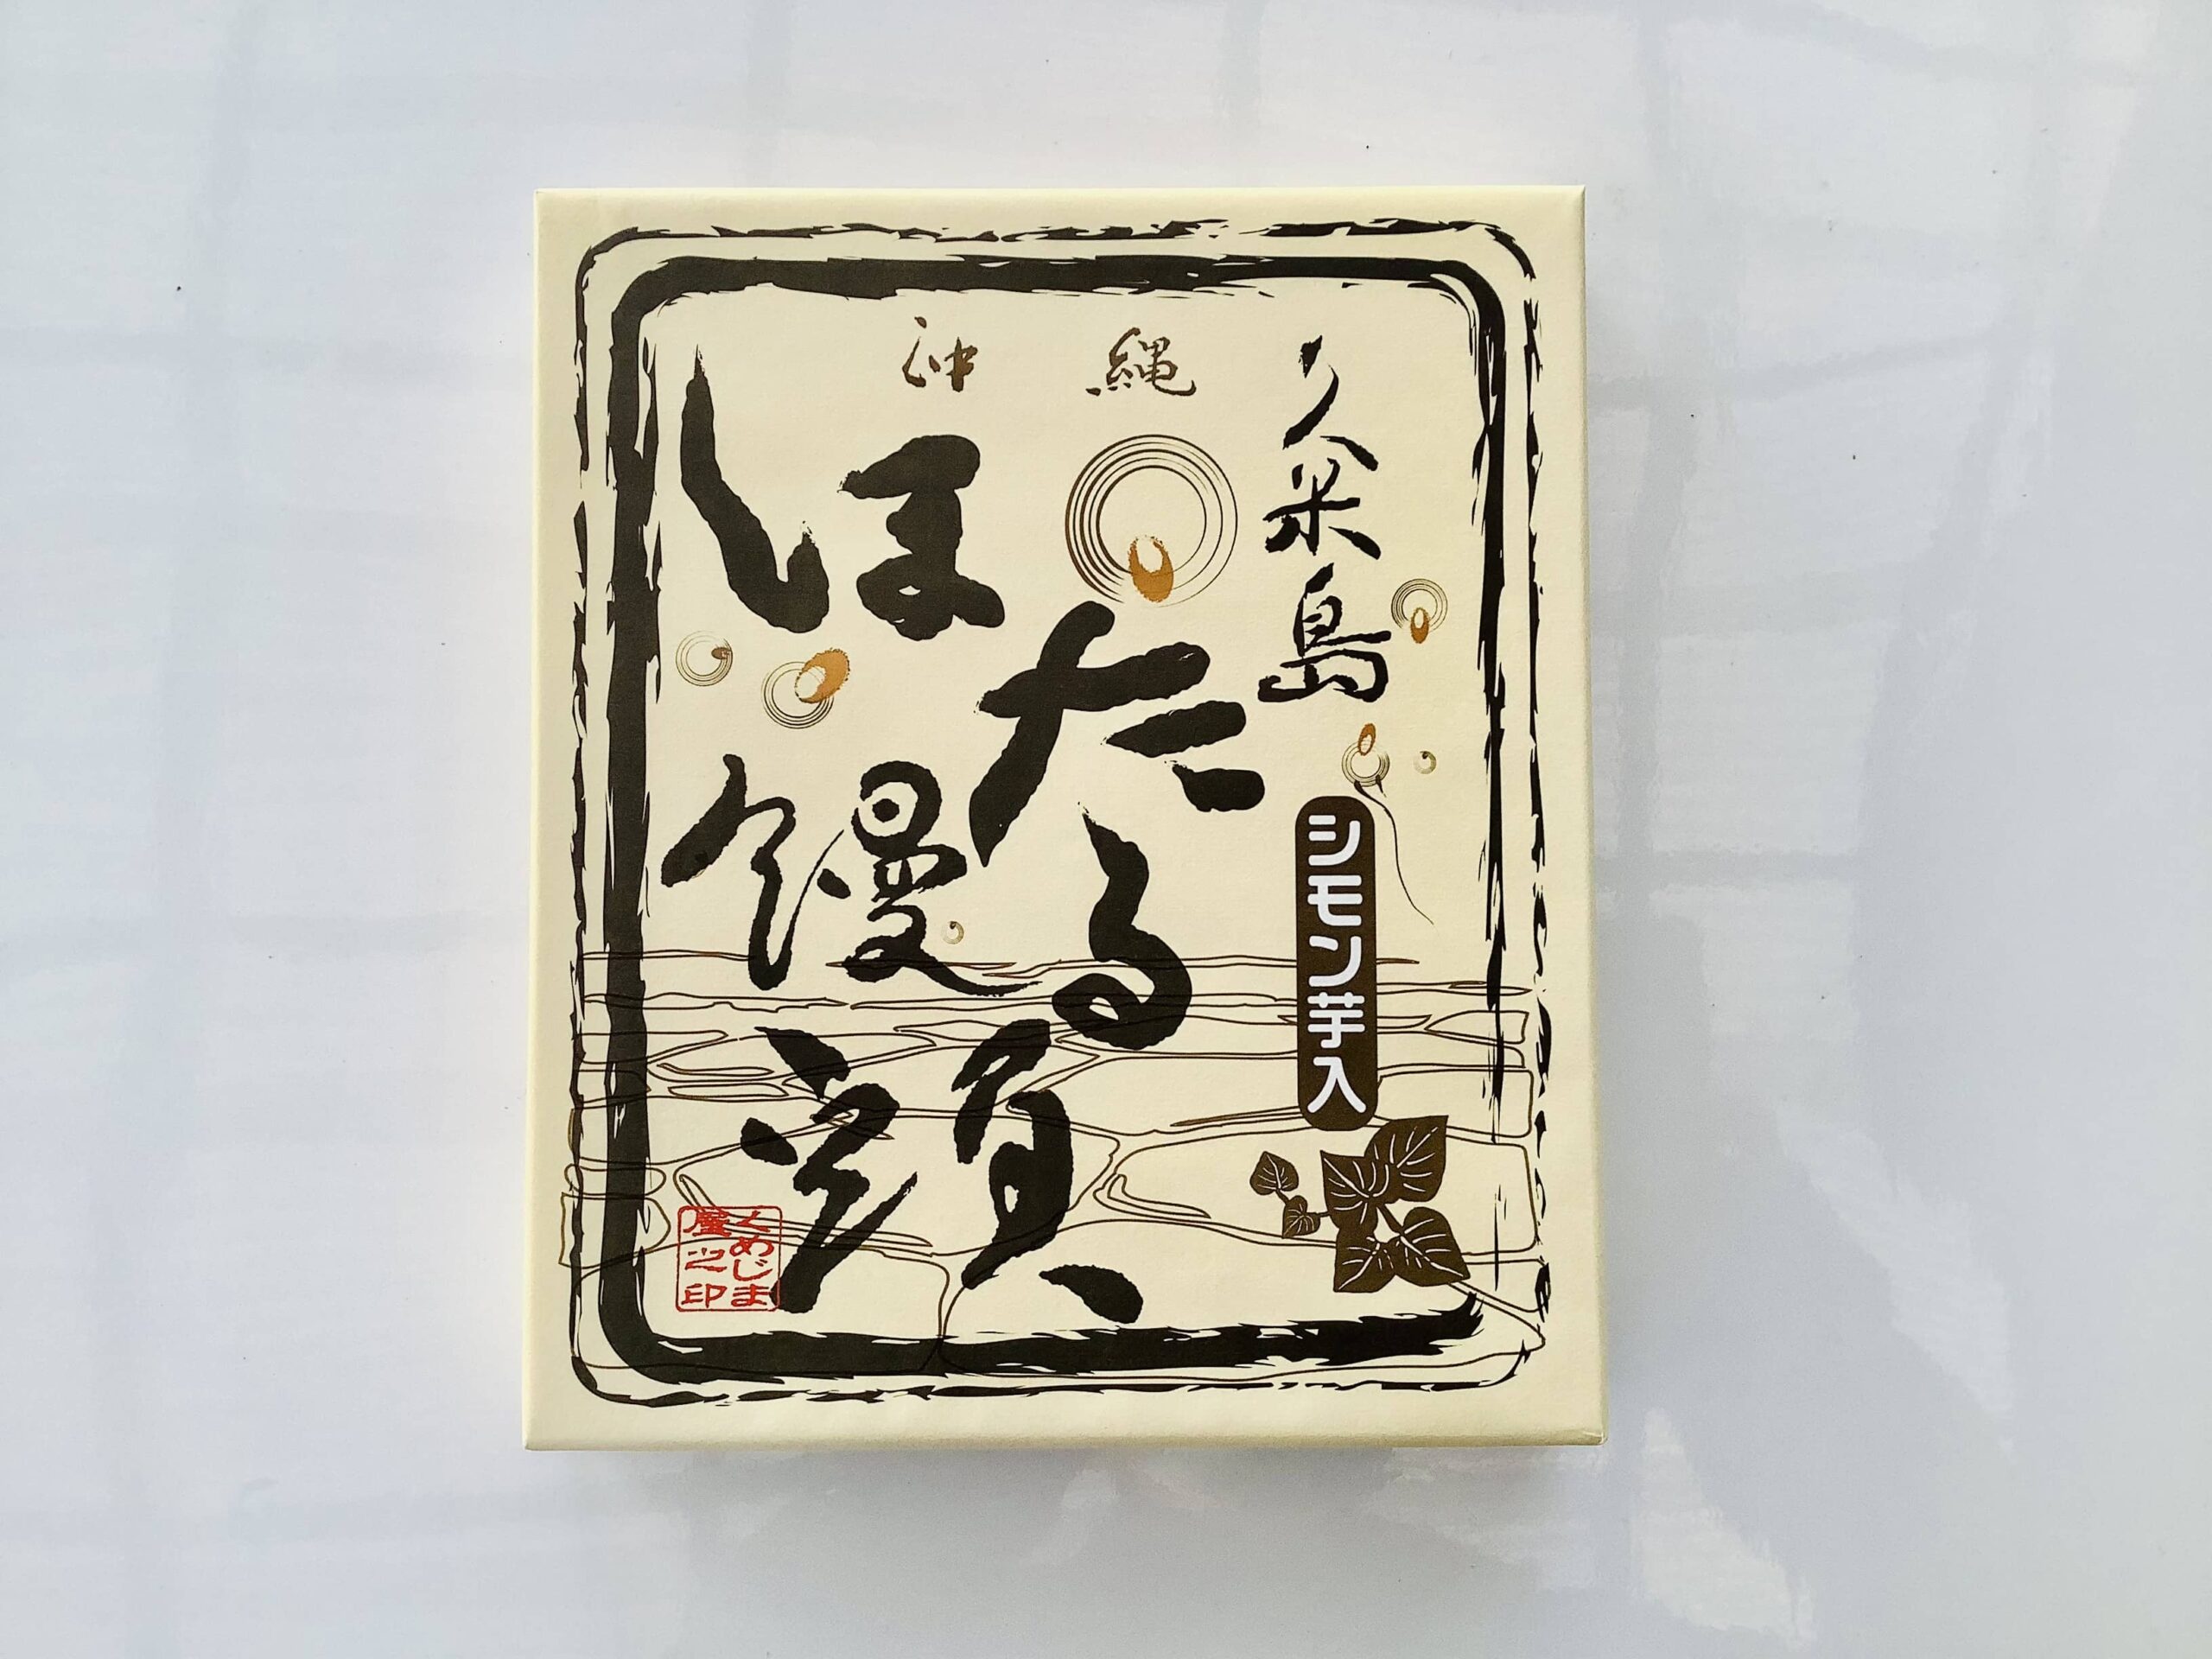 沖縄
久米島
ほたる
饅頭
シモン芋入
くめじま
屋之印